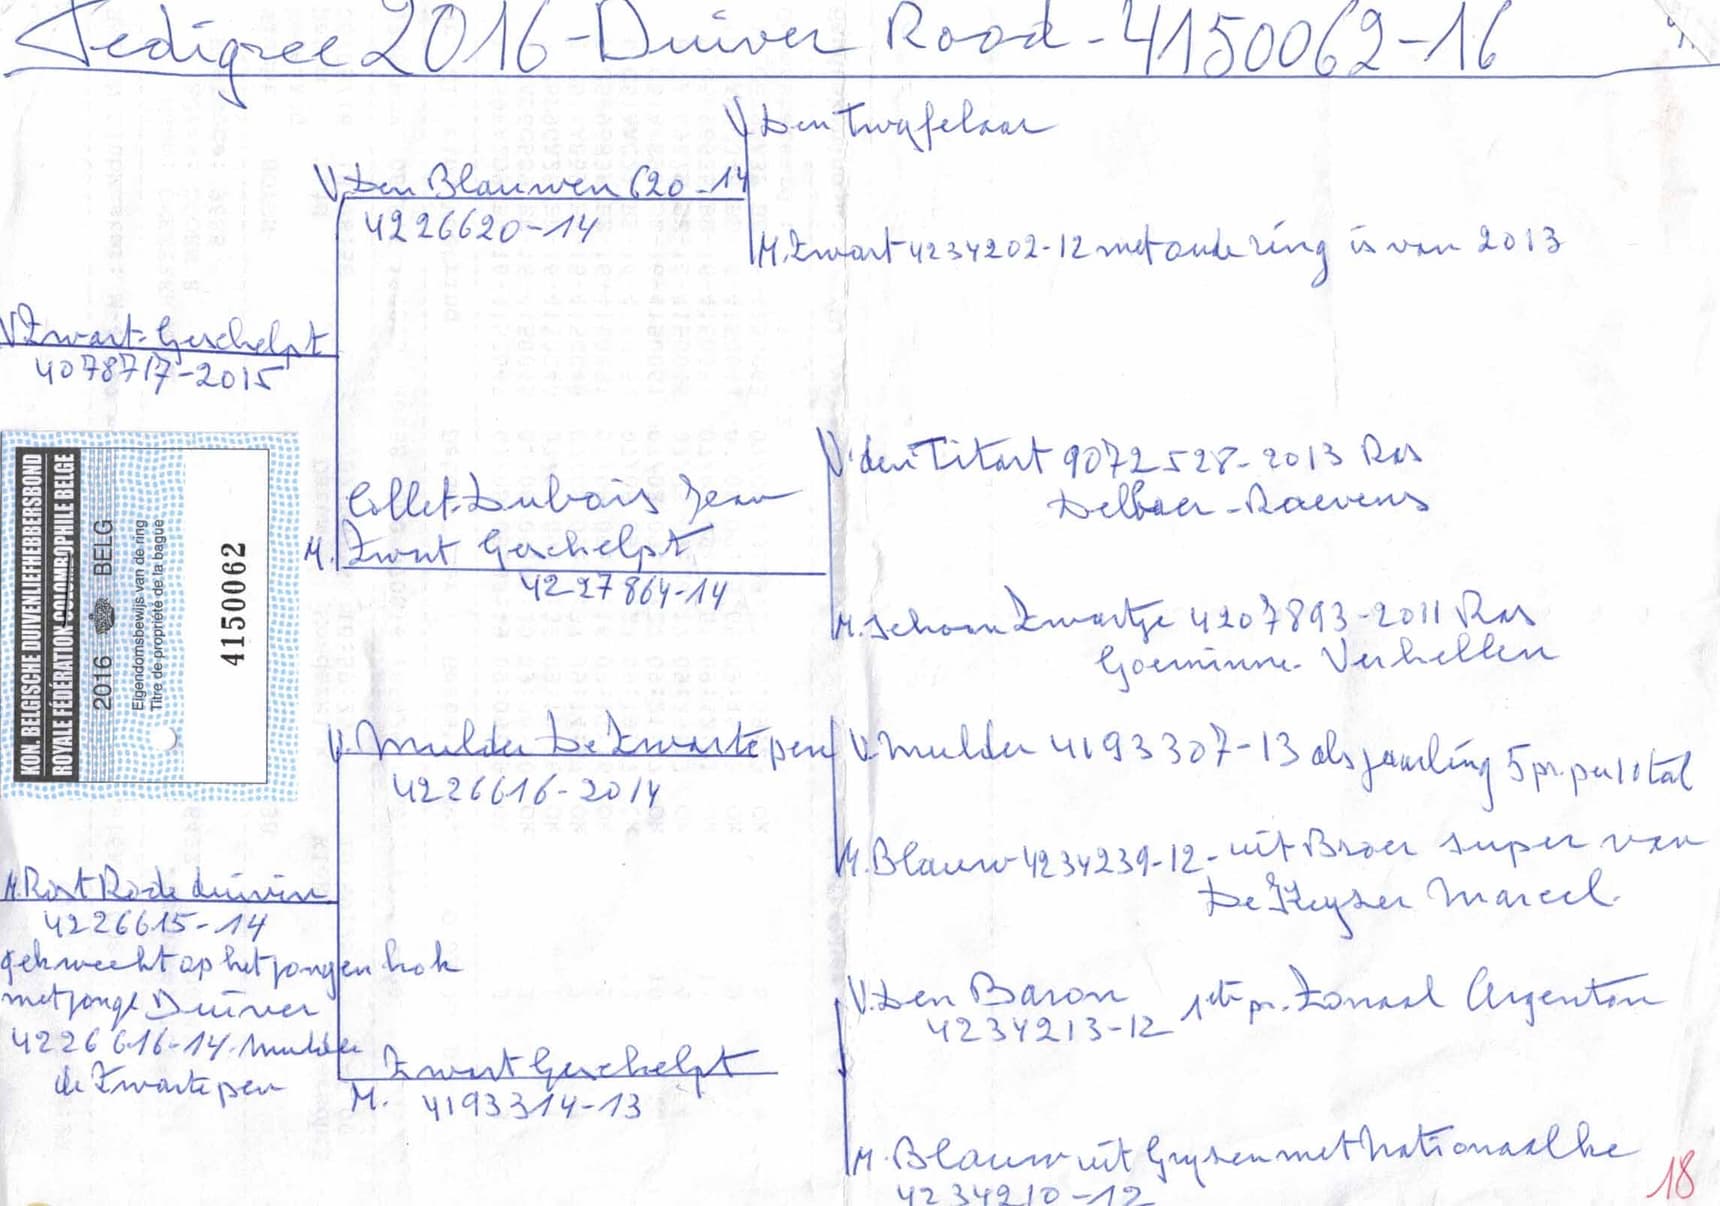 Pedigree 2016-Duiver Rood-4150062-16
V Den Twyfelaar
V. Den Blauwen 620-14
4226620-14
M. Zwart 4234202-12 met oude ring is van 2013
V Zwart-Geschelpt
4078717-2015
V. den Titart 9072528-2013 Ras
Delbaer-Raevens
Collet-Dubois Jean
M. Zwart Geschelpt
4227864-14
M. schoon Zwartje 4207893-2011 Ras
Goeminne-Verhellen
KON. BELGISCHE DUIVENLIEFHEBBERSBOND
ROYALE FÉDÉRATION COLOMBOPHILE BELGE
2016 BELG
Eigendomsbewijs van de ring
Titre de propriété de la bague
4150062
V. Mulder De Zwarte pen
4226616-2014
V. Mulder 4193307-13 als jaarling 5 pr. per 10tal
M. Blauw 4234239-12-uit Broer super van
De Keyser Marcel.
M. Rost Rode duivin
4226615-14
gekweekt op het jongen hok
met jonge Duiver
4226616-14-Mulder
de Zwarte pen
V. Den Baron 1ste pr. Zonaal Argenton
4234213-12
Zwart Geschelpt
M. 4193314-13
M. Blauw uit Gyselen met Nationaal he
4234210-12
18